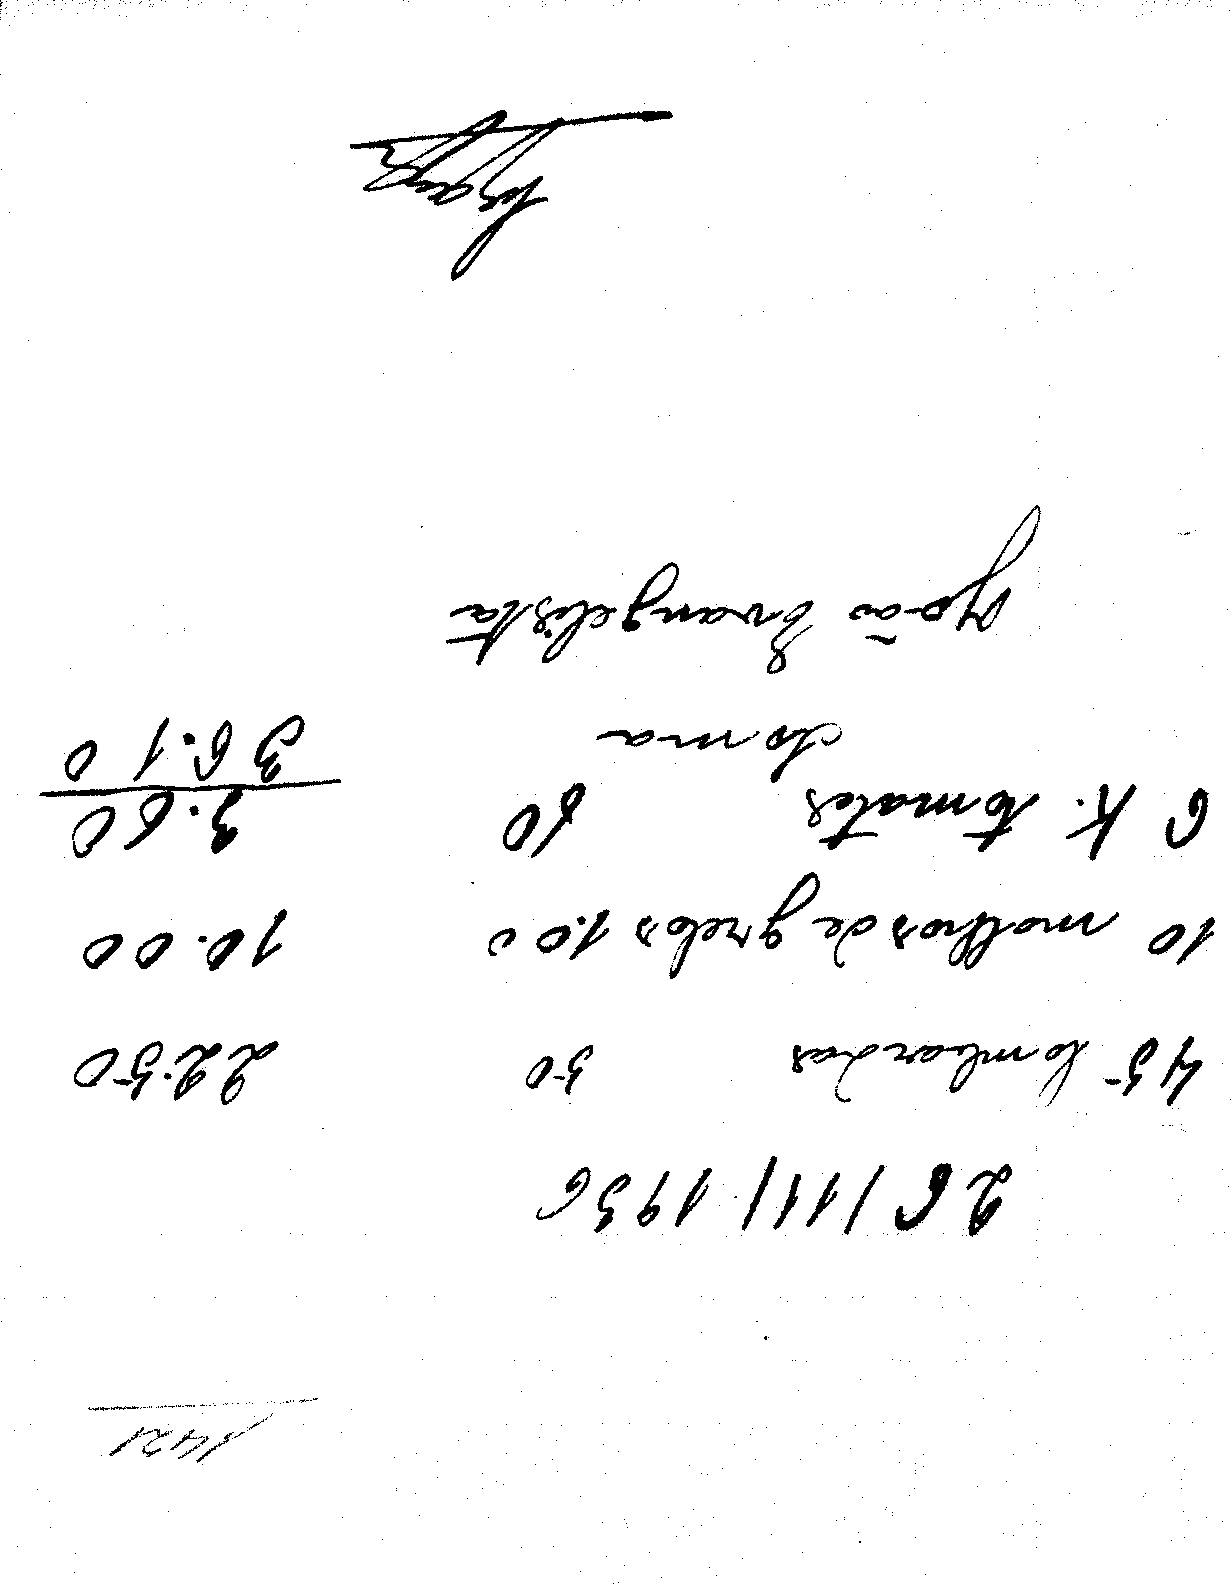 1421
26/11/1936
45 lombardas 50 22.50
10 molhos de grelos 1.00 10.00
6 K. tomates 60 3.60
Soma 36.10
João Evangelista